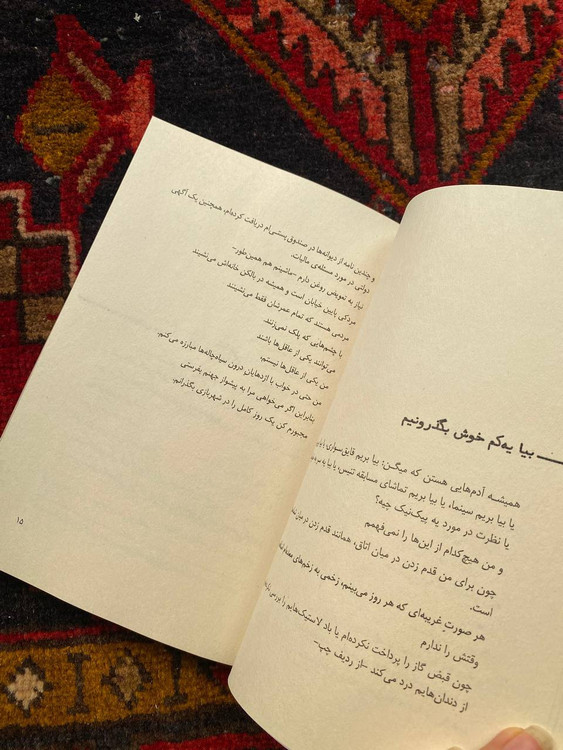 و چندین نامه از دیوانه‌ها در صندوق پستی‌ام دریافت کرده‌ام، همچنین یک آگهی
دولتی در مورد مسئله‌ی مالیات.
نیاز به تعویض روغن دارم –ماشینم هم همین‌طور–
مردکی پایین خیابان است و همیشه در بالکن خانه‌اش می‌نشیند
مردمی هستند که تمام عمرشان فقط می‌نشینند
با چشم‌هایی که پلک نمی‌زنند.
می‌توانند یکی از عاقل‌ها باشند
من یکی از عاقل‌ها نیستم.
من حتی در خواب با اژدهایان درون سیاه‌چاله‌ها مبارزه می‌کنم.
بنابراین اگر می‌خواهی مرا به پیشواز جهنم بفرستی
مجبورم کن یک روز کامل را در شهربازی بگذرانم.
۱۵
بیا یه‌کم خوش بگذرونیم
همیشه آدم‌هایی هستن که میگن: بیا بریم قایق‌سواری یا
یا بیا بریم سینما، یا بیا بریم تماشای مسابقه تنیس، یا بیا یه سره
یا نظرت در مورد یه پیک‌نیک چیه؟
و من هیچ‌کدام از این‌ها را نمی‌فهمم
چون برای من قدم زدن در میان اتاق، همانند قدم زدن در میان
است.
هر صورتِ غریبه‌ای که هر روز می‌بینم، زخمی به زخم‌های معده‌ام
وقتش را ندارم
چون قبض گاز را پرداخت نکرده‌ام یا باد لاستیک‌هایم را بررسی
از دندان‌هایم درد می‌کند –از ردیف چپ–